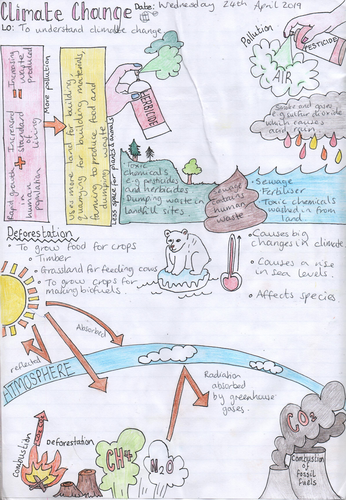 Climate Change
Date: Wednesday 24th April 2019
LO: To understand climate change
Pollution
PESTICIDE
AIR
Smoke and gases
e.g sulfur dioxide
which causes
acid rain
Rapid growth
in
human
population
+
Increased
standard
of
living
=
Increasing
waste
produced
More pollution
uses more land for building,
quarrying for building materials,
farming to produce food and
dumping waste
Less space for plants & animals
HERBICIDE
Toxic
chemicals
e.g pesticides
and herbicides
Dumping waste in
landfill sites
Sewage
contains
human
waste
- Sewage
- Fertiliser
- Toxic chemicals
washed in from
land.
Deforestation
- To grow food for crops
- Timber
- Grassland for feeding cows
- To grow crops for
making biofuels.
- Causes big
changes in climate
- Causes a rise
in sea levels.
- Affects species
Absorbed
reflected
ATMOSPHERE
Radiation
absorbed
by greenhouse
gases.
Combustion
Deforestation
CH4
N2O
CO2
Combustion
of
Fossil
Fuels